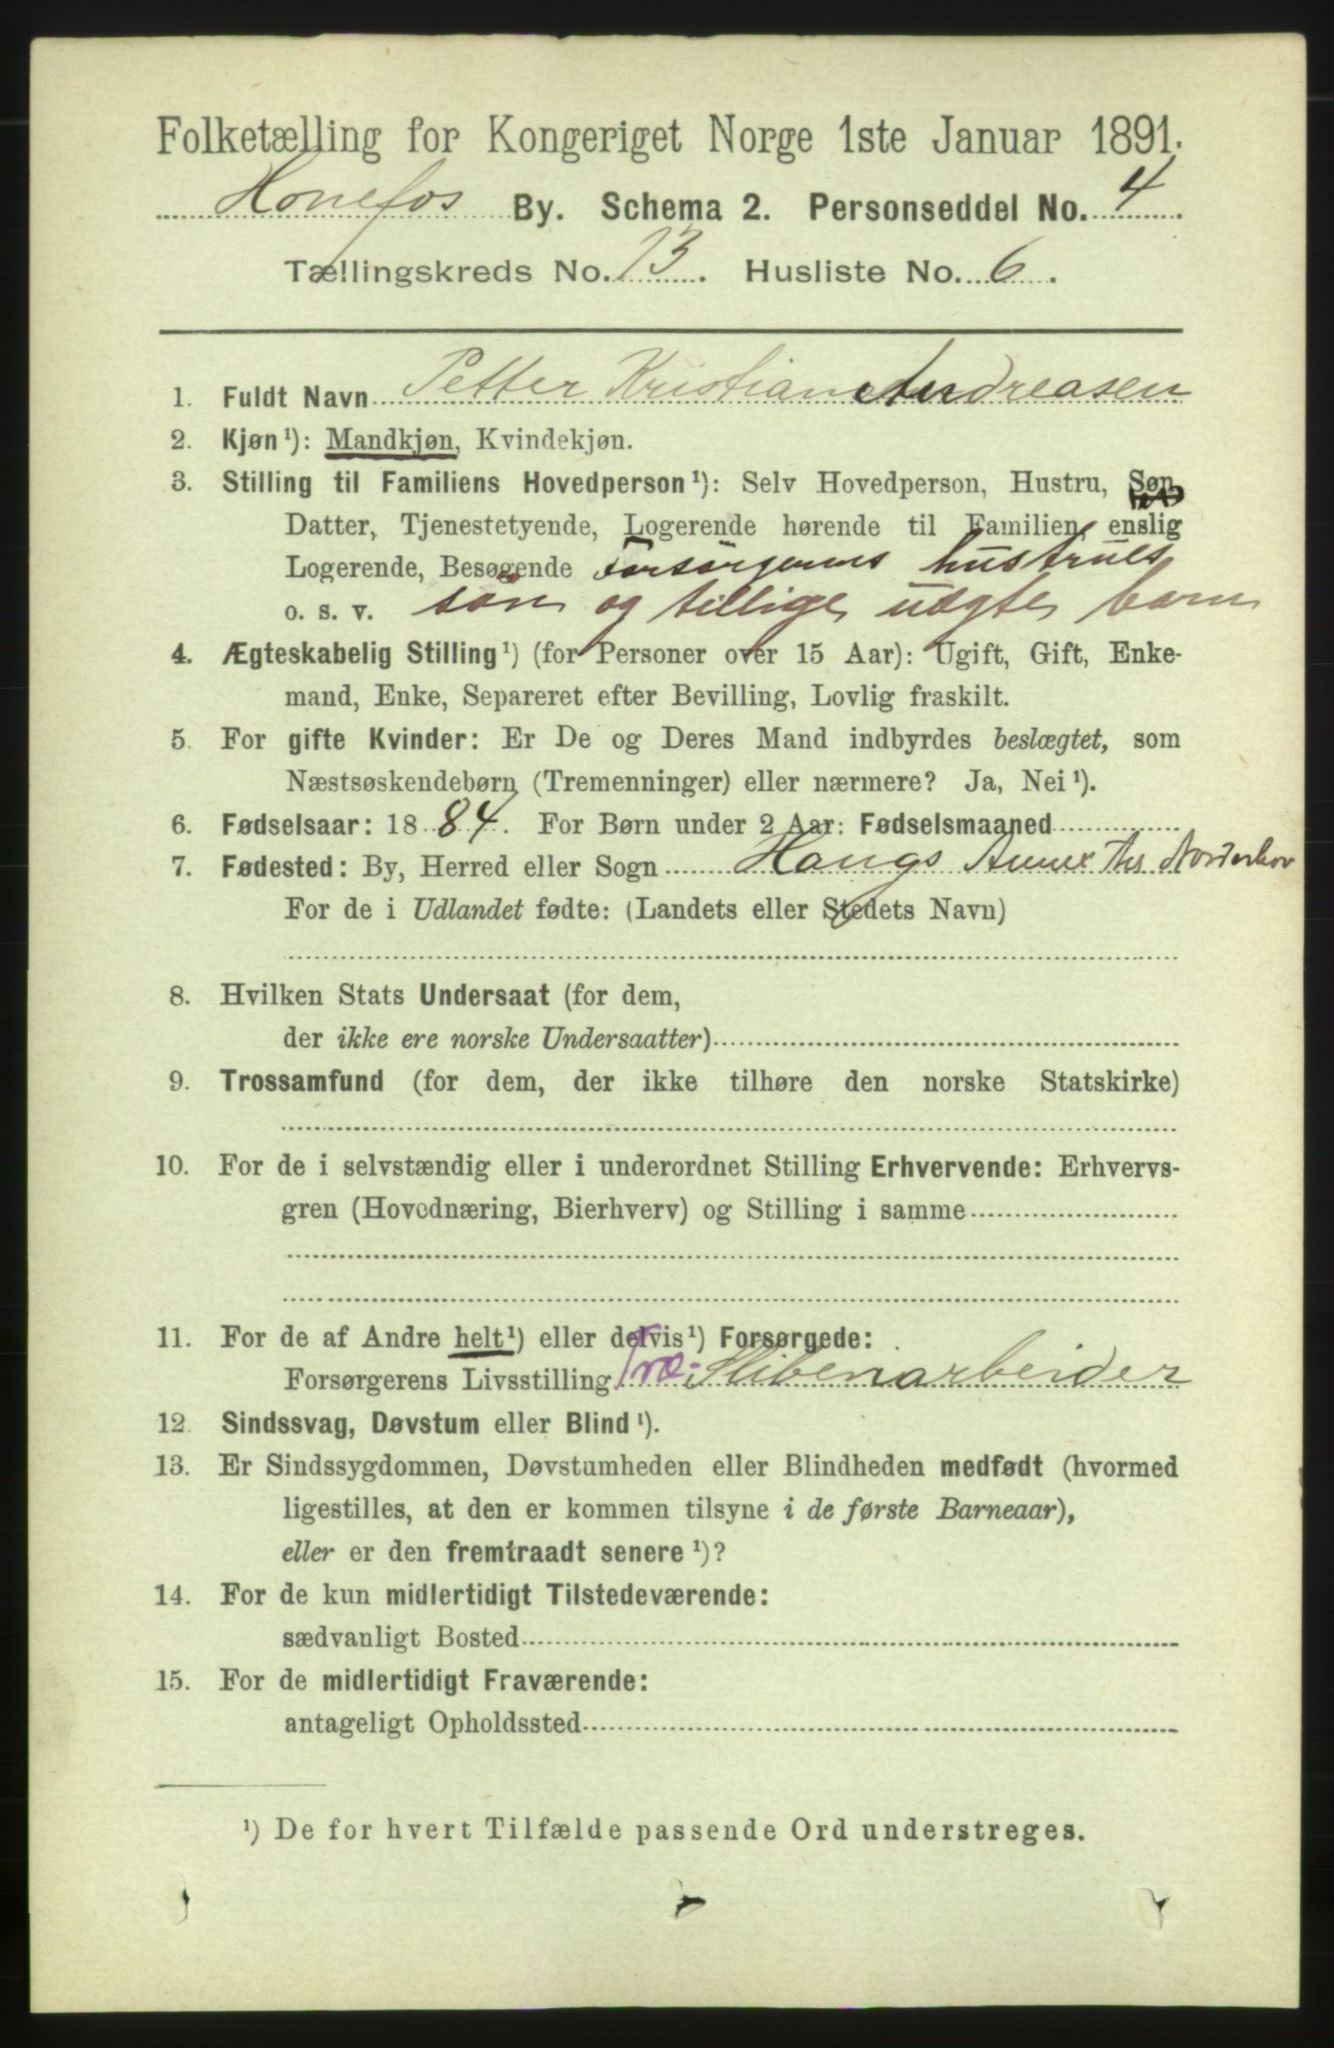 Folketælling for Kongeriget Norge 1ste Januar 1891.
Hønefos By. Schema 2. Personseddel No. 4
Tællingskreds No. 13. Husliste No. 6.
1. Fuldt Navn Petter Kristian Andreasen
2. Kjøn¹): Mandkjøn, Kvindekjøn.
3. Stilling til Familiens Hovedperson¹): Selv Hovedperson, Hustru, Søn,
Datter, Tjenestetyende, Logerende hørende til Familien, enslig
Logerende, Besøgende Forsørgerens hustrues
o. s. v. søn og tillige uægte barn
4. Ægteskabelig Stilling¹) (for Personer over 15 Aar): Ugift, Gift, Enke-
mand, Enke, Separeret efter Bevilling, Lovlig fraskilt.
5. For gifte Kvinder: Er De og Deres Mand indbyrdes beslægtet, som
Næstsøskendebørn (Tremenninger) eller nærmere? Ja, Nei¹).
6. Fødselsaar: 1884. For Børn under 2 Aar: Fødselsmaaned
7. Fødested: By, Herred eller Sogn Haugs Annex Norderhov
For de i Udlandet fødte: (Landets eller Stedets Navn)
8. Hvilken Stats Undersaat (for dem,
der ikke ere norske Undersaatter)
9. Trossamfund (for dem, der ikke tilhøre den norske Statskirke)
10. For de i selvstændig eller i underordnet Stilling Erhvervende: Erhvervs-
gren (Hovednæring, Bierhverv) og Stilling i samme
11. For de af Andre helt¹) eller delvis¹) Forsørgede:
Forsørgerens Livsstilling Træ-Sliberiarbeider
12. Sindssvag, Døvstum eller Blind¹).
13. Er Sindssygdommen, Døvstumheden eller Blindheden medfødt (hvormed
ligestilles, at den er kommen tilsyne i de første Barneaar),
eller er den fremtraadt senere¹)?
14. For de kun midlertidigt Tilstedeværende:
sædvanligt Bosted
15. For de midlertidigt Fraværende:
antageligt Opholdssted
¹) De for hvert Tilfælde passende Ord understreges.